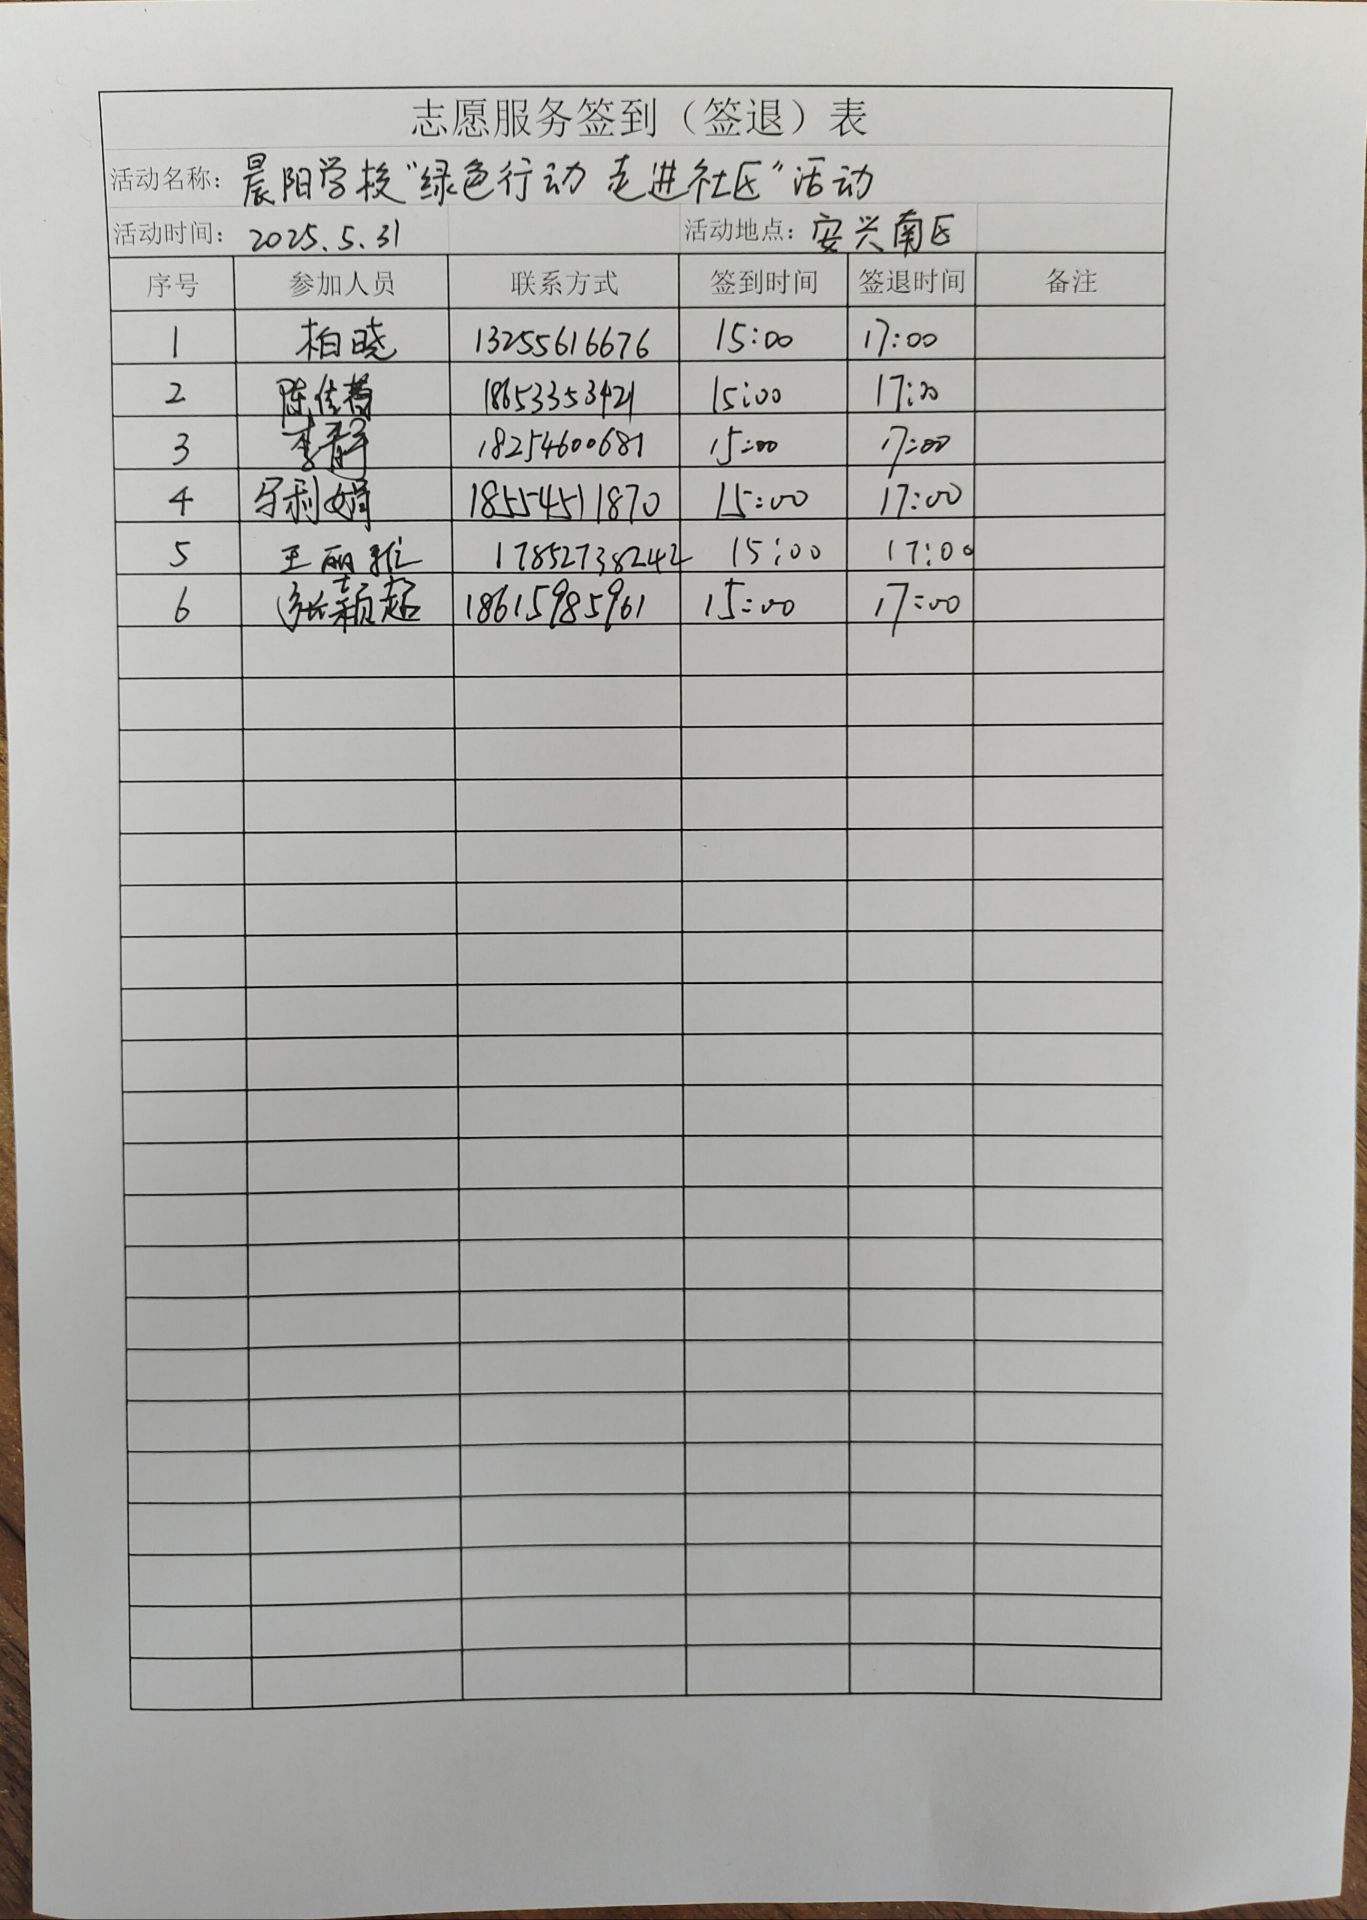 志愿服务签到（签退）表
活动名称：晨阳学校“绿色行动 走进社区”活动
活动时间：2025.5.31 活动地点：安兴南区
序号 参加人员 联系方式 签到时间 签退时间 备注
1 柏晓 13255616676 15:00 17:00
2 陈佳 18653353421 15:00 17:00
3 李静 18254600681 15:00 17:00
4 利娟 18554511870 15:00 17:00
5 王丽雅 17852738242 15:00 17:00
6 张颖超 18615985961 15:00 17:00